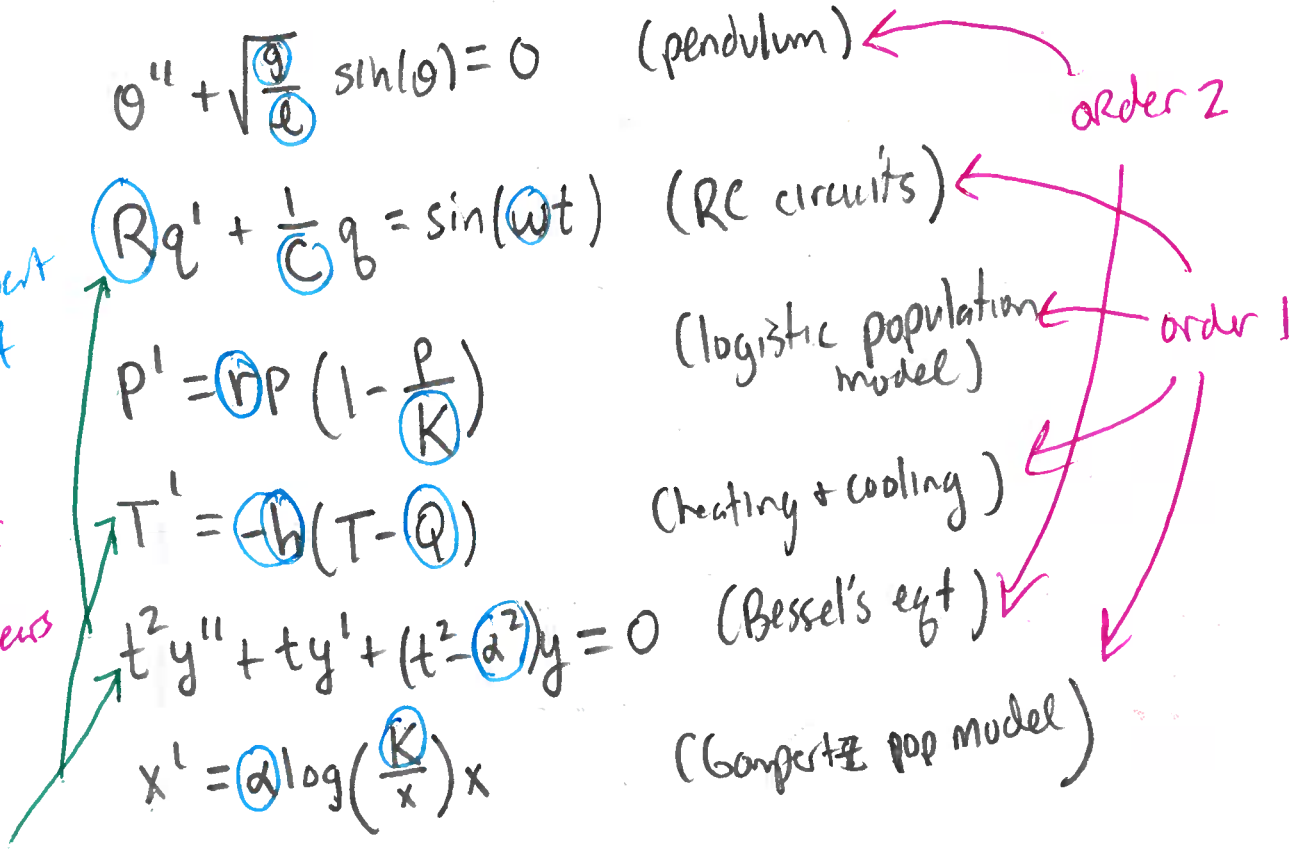 θ'' + √(g/l) sin(θ) = 0 (pendulum)
order 2
Rq' + 1/C q = sin(ωt) (RC circuits)
order 1
p' = rp(1 - p/K) (logistic population
model)
T' = -h(T - Q) (heating + cooling)
t²y'' + ty' + (t² - α²)y = 0 (Bessel's eqt)
x' = α log(K/x) x (Gompertz pop model)